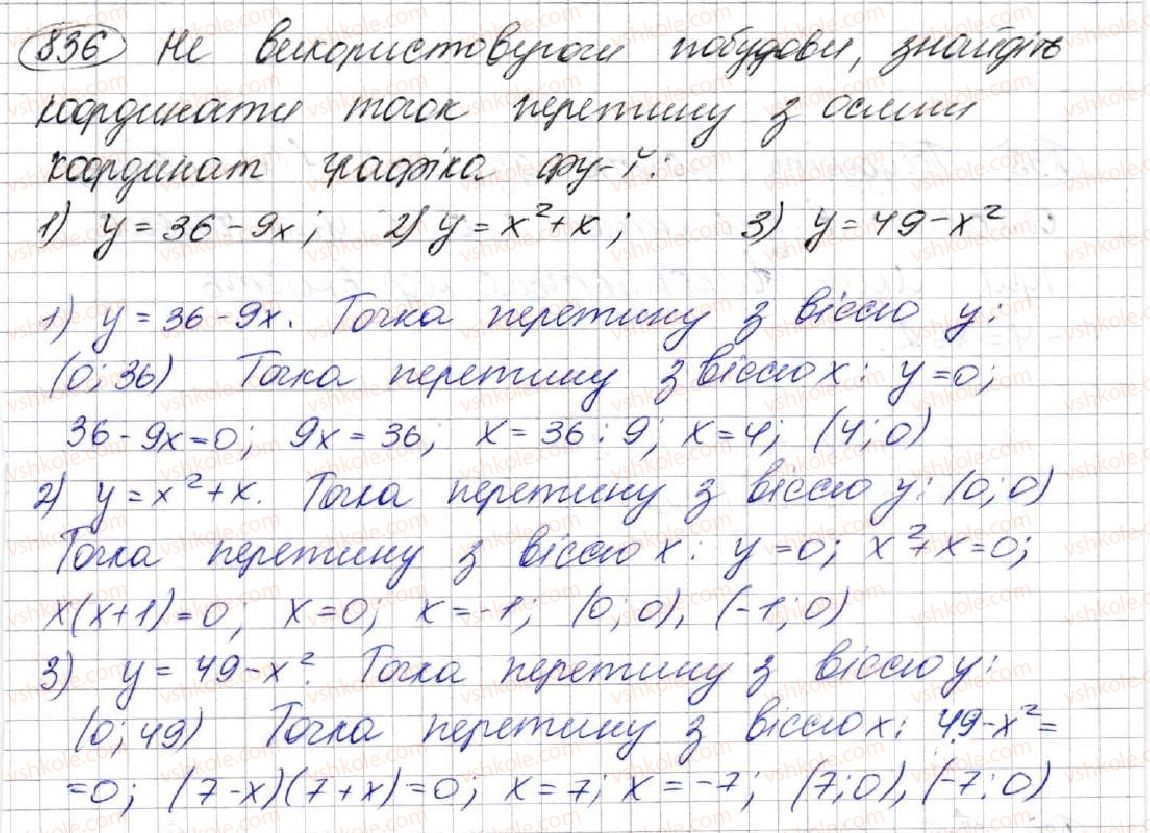 836 Не використовуючи побудови, знайдіть
координати точок перетину з осями
координат графіка фу-ї:
1) y = 36 - 9x; 2) y = x² + x; 3) y = 49 - x²
1) y = 36 - 9x. Точка перетину з віссю y:
(0; 36) Точка перетину з віссю x: y = 0;
36 - 9x = 0; 9x = 36; x = 36 : 9; x = 4; (4; 0)
2) y = x² + x. Точка перетину з віссю y: (0; 0)
Точка перетину з віссю x: y = 0; x² + x = 0;
x(x + 1) = 0; x = 0; x = -1; (0; 0), (-1; 0)
3) y = 49 - x². Точка перетину з віссю y:
(0; 49) Точка перетину з віссю x: 49 - x² =
= 0; (7 - x)(7 + x) = 0; x = 7; x = -7; (7; 0), (-7; 0)